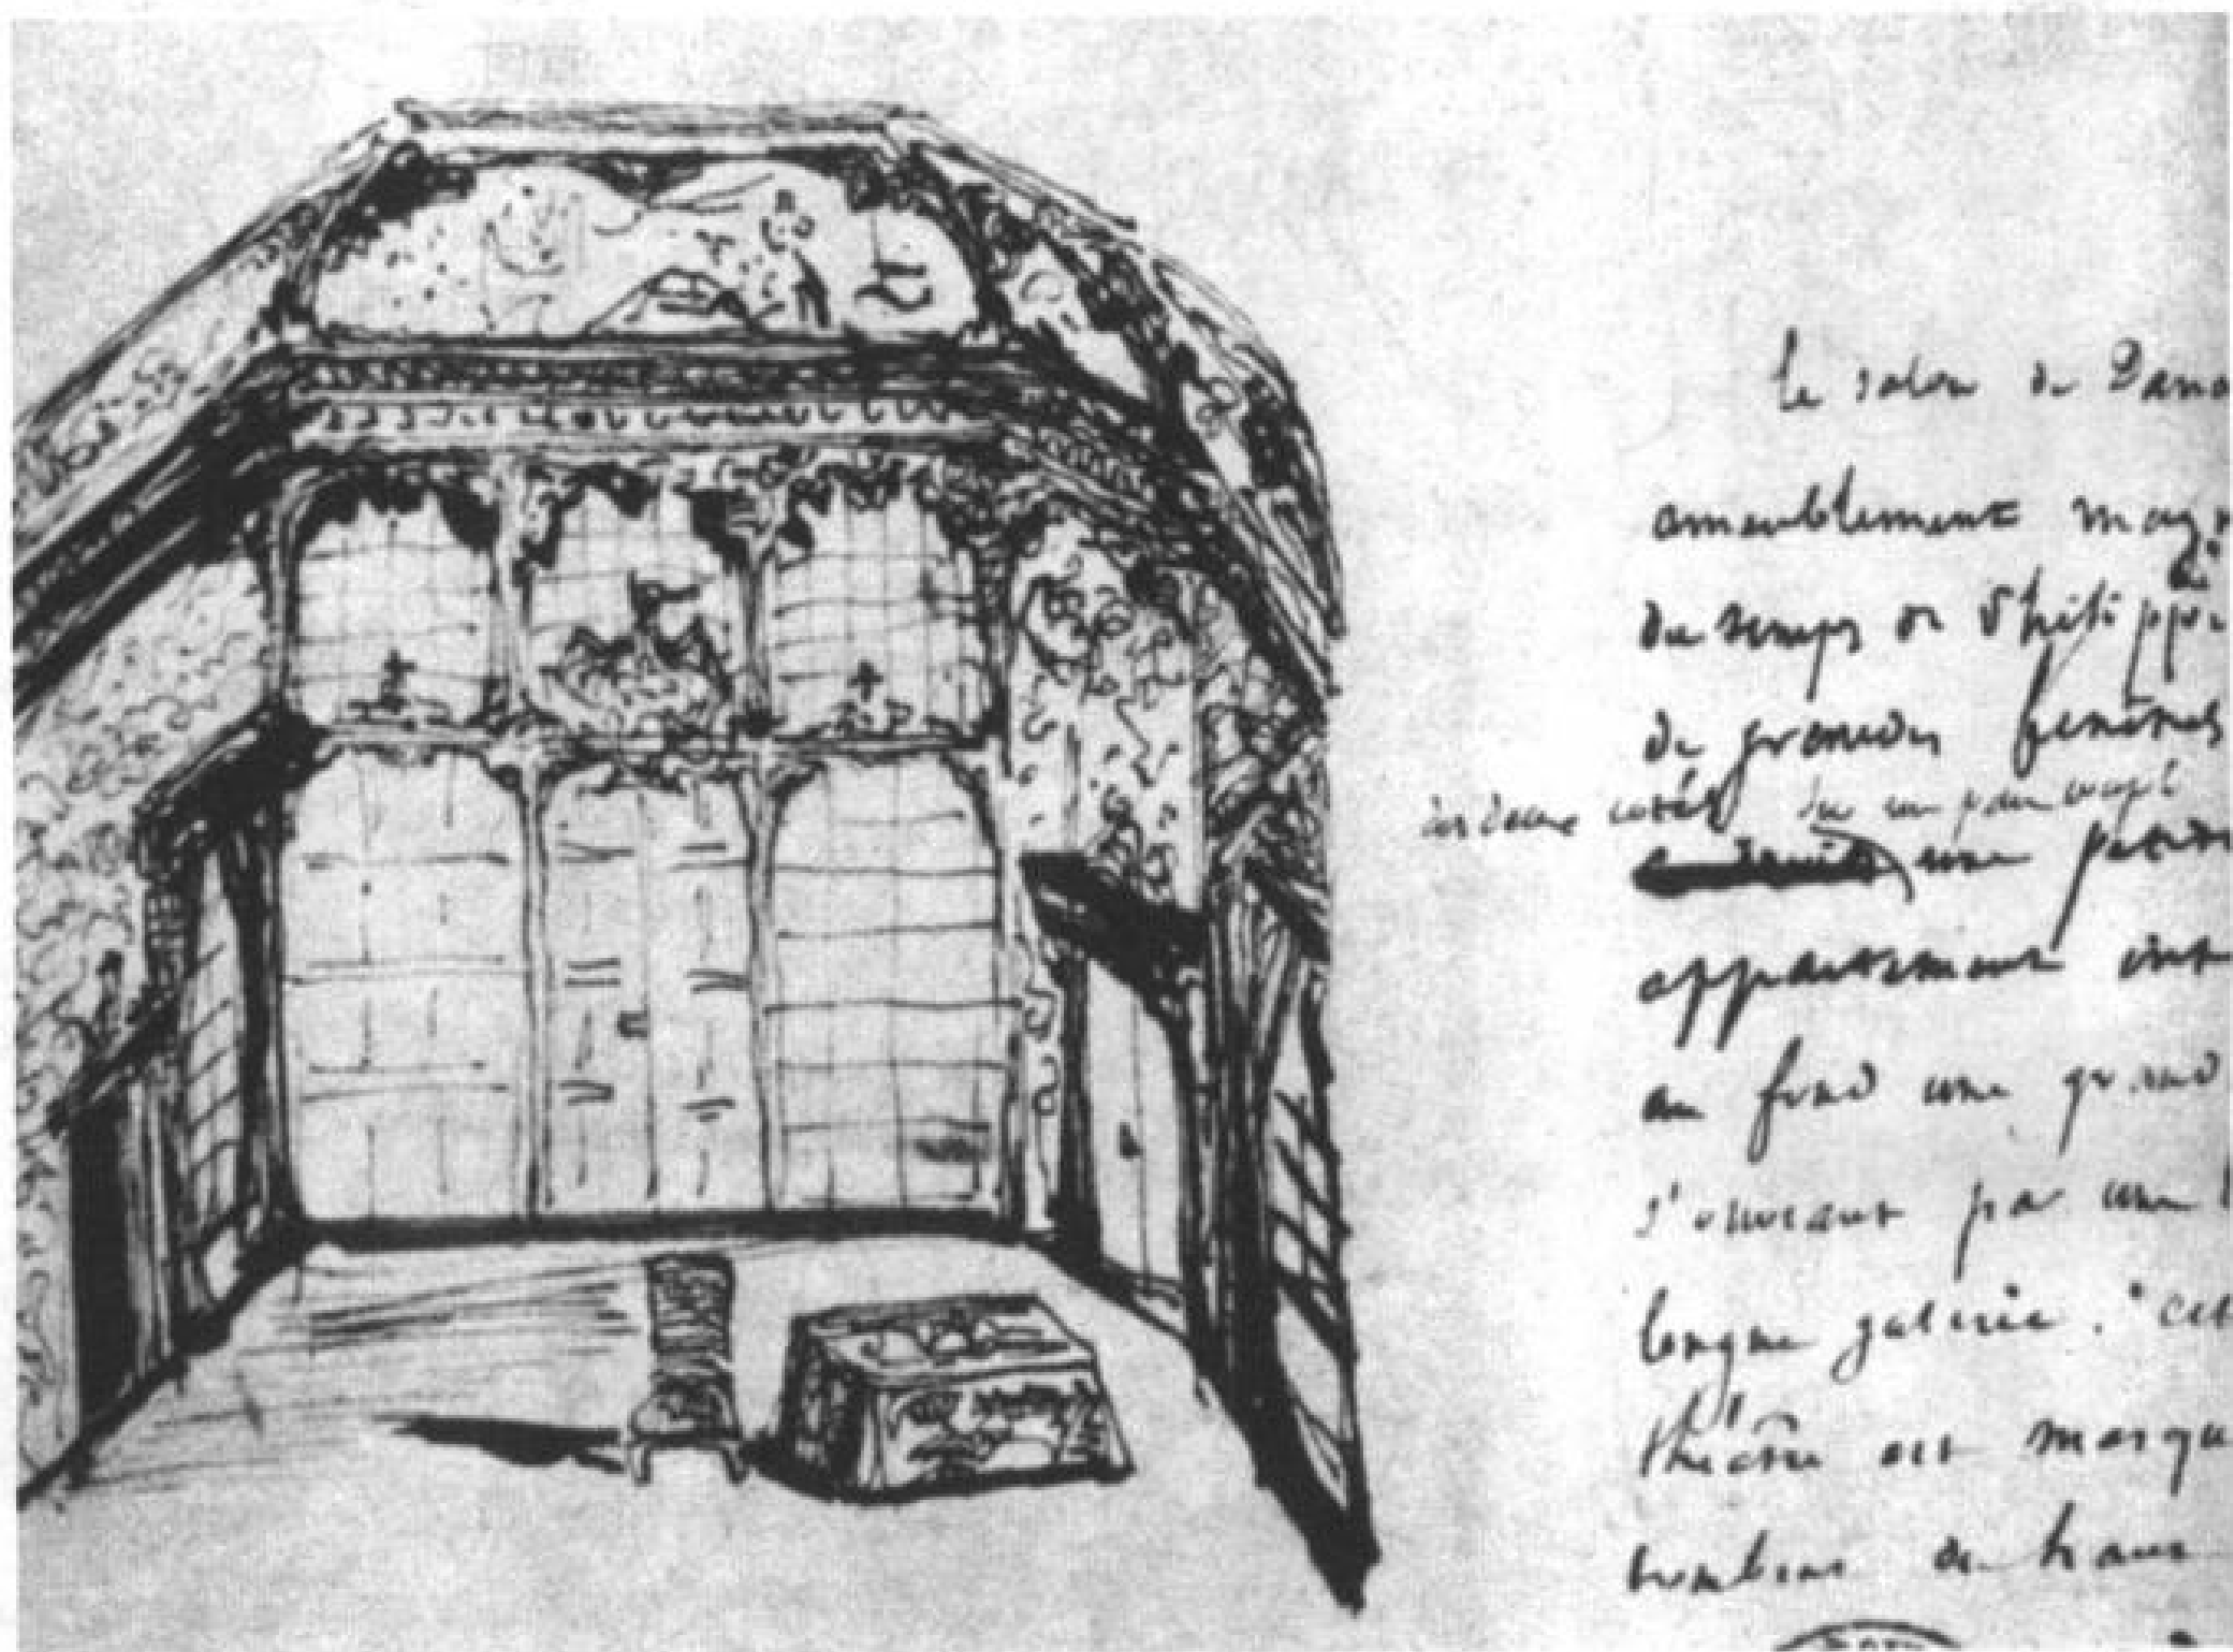 le salon de Dana
ameublement mag
du temps de Philippe
de grandes fenêtres
des deux cotés dans un pan coupé
a droite une petite
appartement int
au fond une grand
s'ouvrant par une
longue galerie. cet
théâtre est masqu
tombent de haut